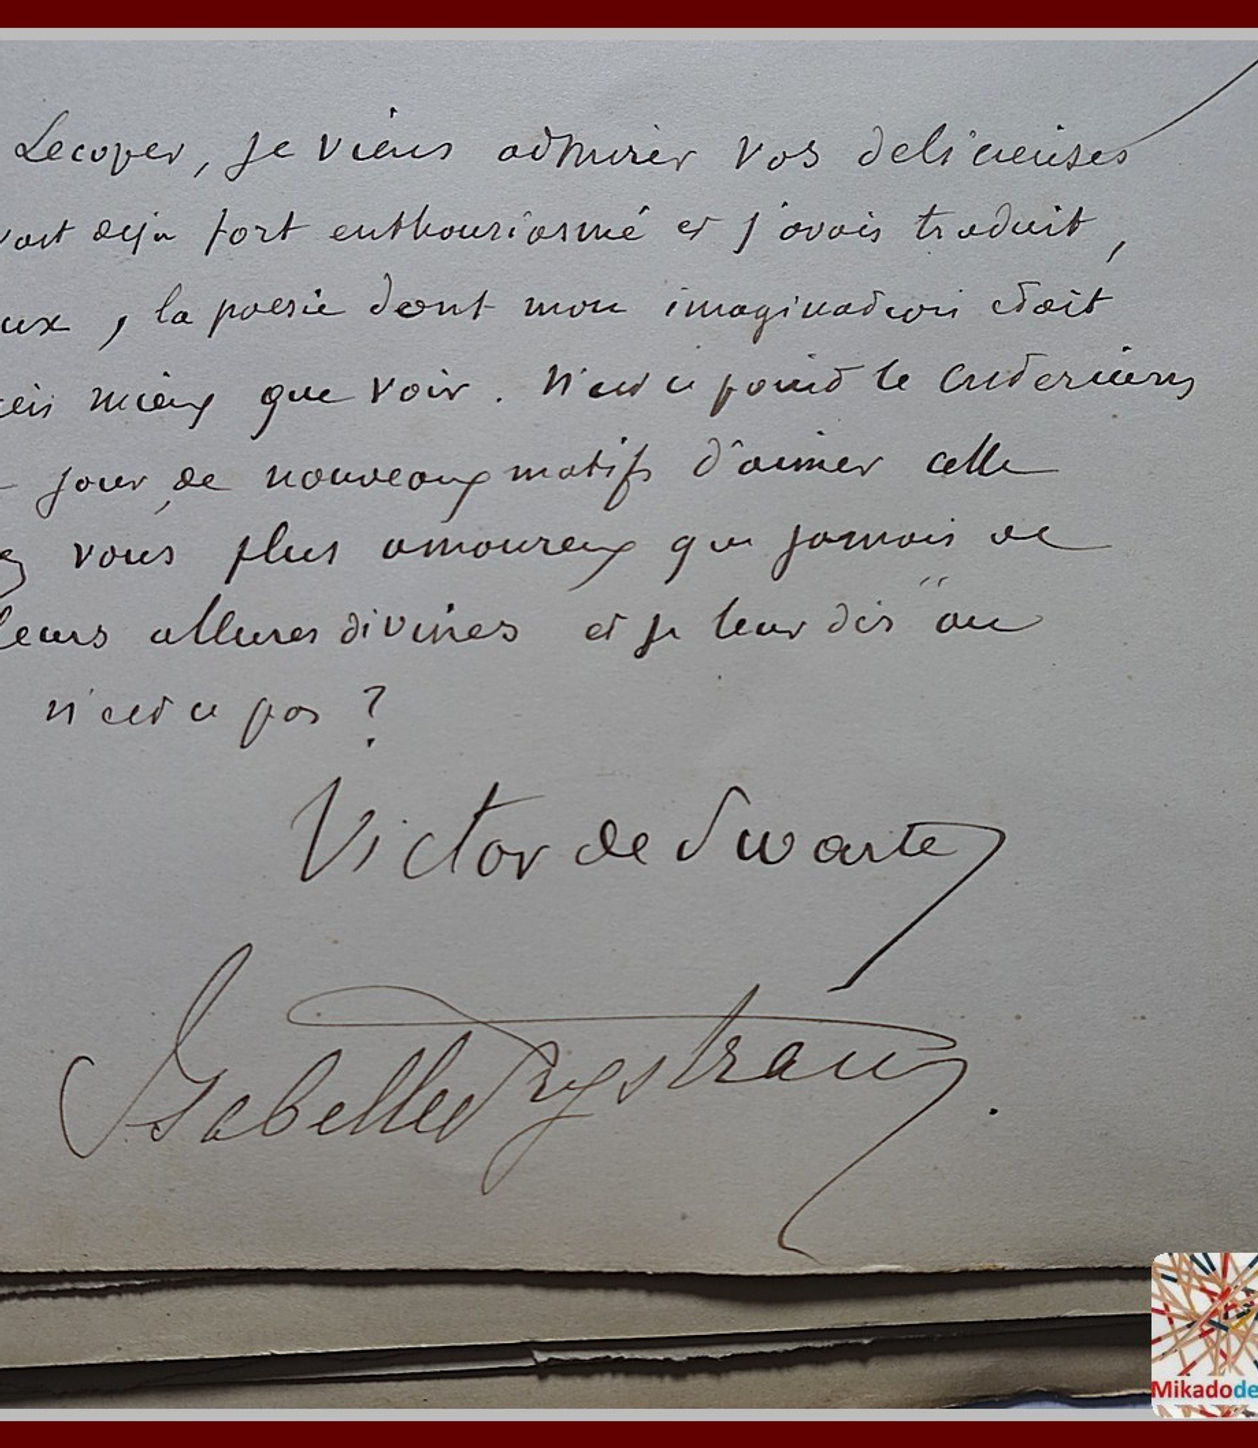 Lecoyer, je viens admirer vos delicieuses
deja fort enthousiasmé et j'avais traduit,
eux, la poesie dont mon imagination etait
mieux que voir. N'est ce point le
jour de nouveaux motifs d'aimer celle
vous plus amoureux que jamais de
leurs allures divines et je leur dis "au
n'est ce pas ?
Victor de Swarte
Isabelle
Mikadode